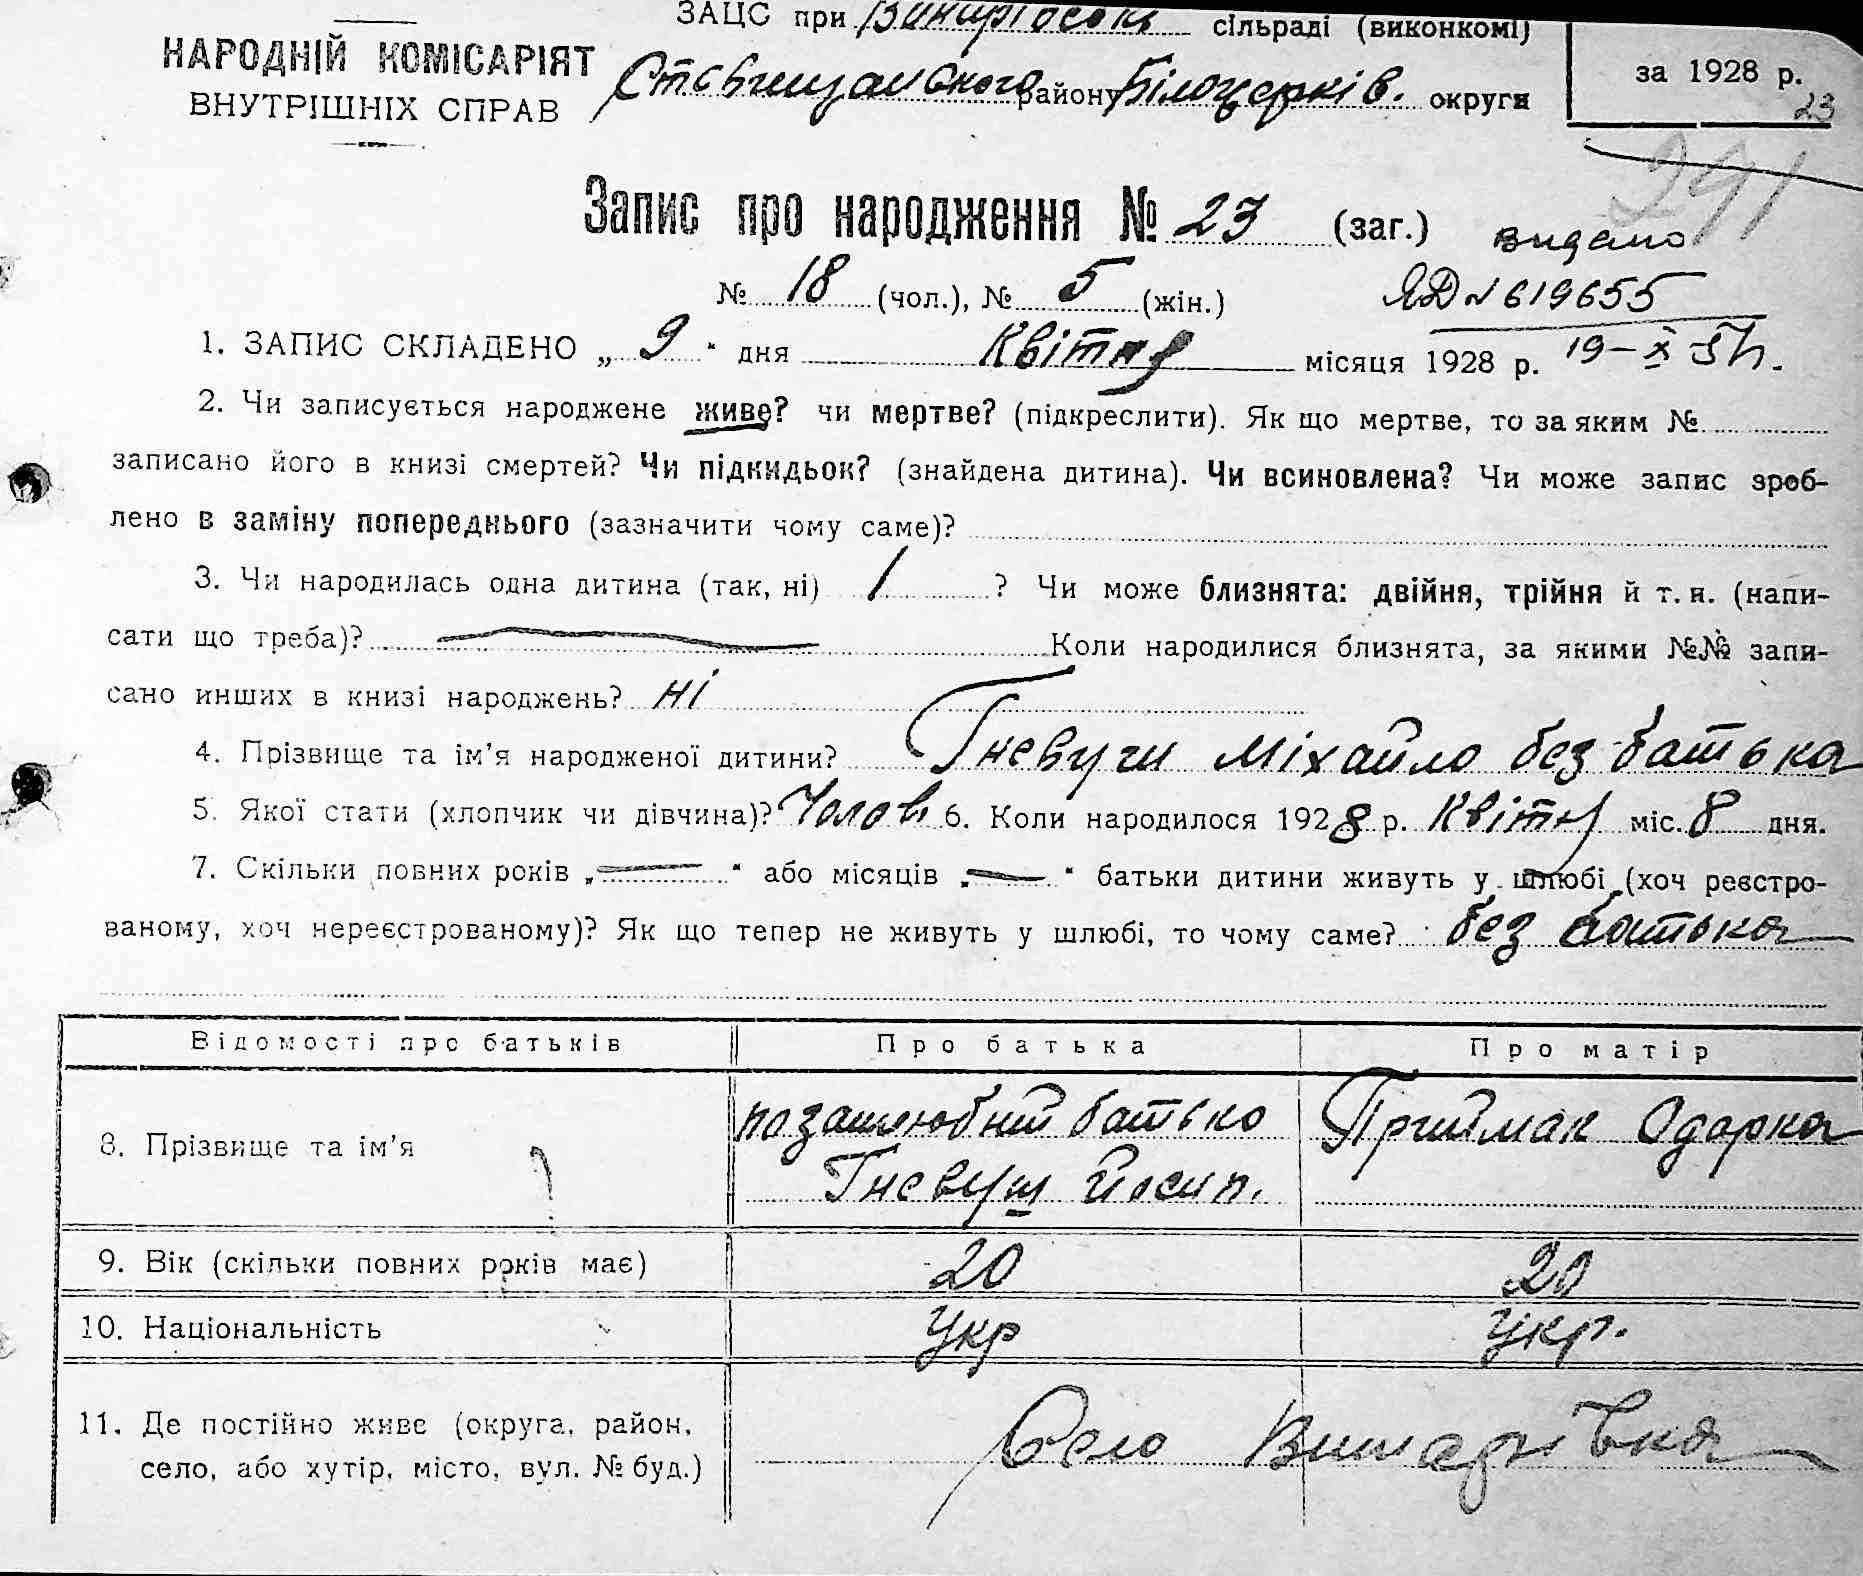 ЗАЦС при Винарівській сільраді (виконкомі)
НАРОДНІЙ КОМІСАРІЯТ
ВНУТРІШНІХ СПРАВ
Ставищанського району Білоцерків. округи
за 1928 р.
23
291
Запис про народження № 23 (заг.)
видано
№ 18 (чол.), № 5 (жін.)
ЯД № 619655
1. ЗАПИС СКЛАДЕНО „ 9 “ дня Квітня місяця 1928 р.
19-X
2. Чи записується народжене живе? чи мертве? (підкреслити). Як що мертве, то за яким №
записано його в книзі смертей? Чи підкидьок? (знайдена дитина). Чи всиновлена? Чи може запис зроб-
лено в заміну попереднього (зазначити чому саме)?
3. Чи народилась одна дитина (так, ні) 1 ? Чи може близнята: двійня, трійня й т. и. (напи-
сати що треба)? Коли народилися близнята, за якими №№ запи-
сано инших в книзі народжень? ні
4. Прізвище та ім’я народженої дитини? Гневуш Міхайло без батька
5. Якої стати (хлопчик чи дівчина)? Чолов 6. Коли народилося 1928 р. Квітня міс. 8 дня.
7. Скільки повних років „ “ або місяців „ “ батьки дитини живуть у шлюбі (хоч реєстро-
ваному, хоч нереєстрованому)? Як що тепер не живуть у шлюбі, то чому саме? без батька
Відомості про батьків Про батька Про матір
8. Прізвище та ім’я позашлюбний батько Гневуш Йосип. Приймак Одарка
9. Вік (скільки повних років має) 20 20
10. Національність Укр Укр.
11. Де постійно живе (округа, район,
село, або хутір, місто, вул. № буд.) Село Винарівка